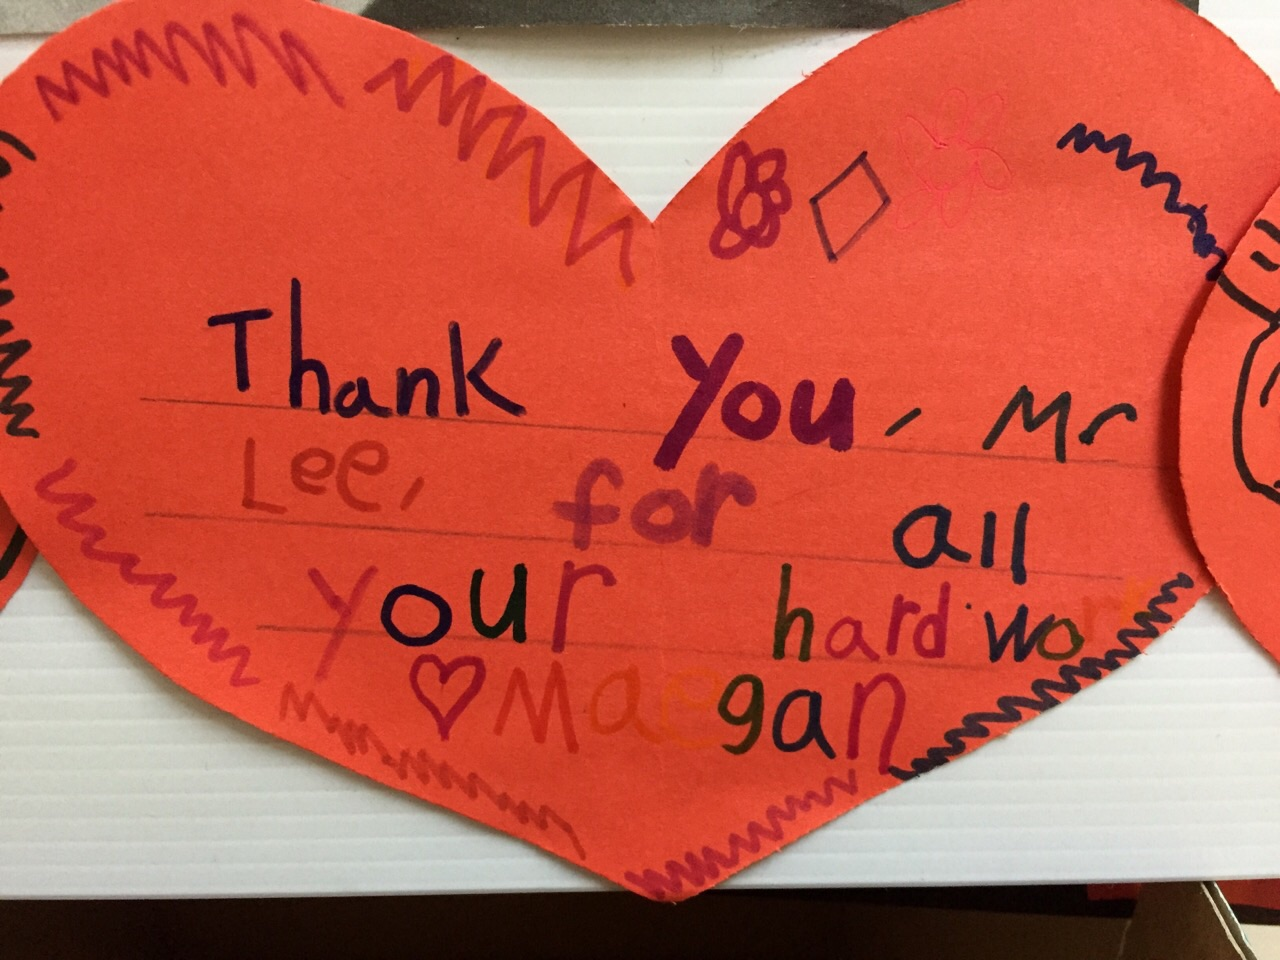 Thank you, Mr
Lee, for all
your hard work
♡ Maegan